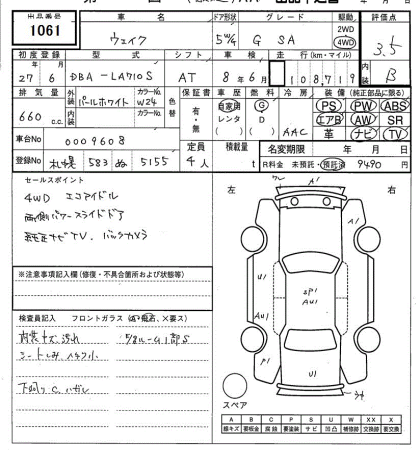 出品番号
1061
車名
ウェイク
ドア形状
5 W/G
グレード
G SA
駆動
2WD
4WD
評価点
3.5
内装
B
初度登録
27年 6月
型式
DBA-LA710S
シフト
AT
車検
8年 6月
走行(km・マイル)
108,719
排気量
660 c.c.
外装
パールホワイト
カラーNo.
W24
内装
カラーNo.
色替
保証書
有・無
車歴
自家用
レンタ
燃料
G
D
冷房
AAC
装備(純正部品に限る)
PS PW ABS
エアB AW SR
革 ナビ TV
車台No
0009608
定員
4人
積載量
t
名変期限
年 月 日
登録No
札幌 583 ぬ 5155
R料金 未預託・預託済 9490 円
セールスポイント
4WD エコアイドル
両側パワースライドドア
純正ナビTV バックカメラ
※注意事項記入欄(修復・不具合箇所および状態等)
検査員記入 フロントガラス
内装キズ汚れ
シートしみ
下回りC
左
右
A1
U1
AU1
EP1
AU1
P1
U1
スペア
A B C P S U W X XX
線キズ 要板金 腐蝕 要塗装 サビ 凹凸 補修跡 要交換